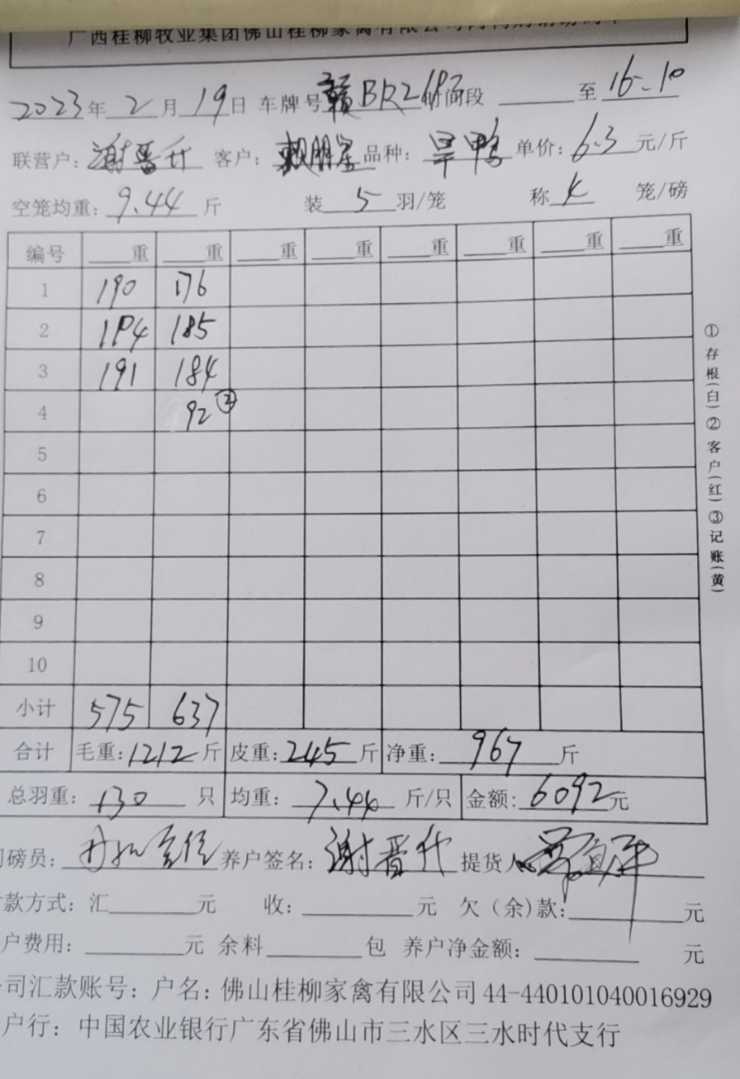 广西桂柳牧业集团佛山桂柳家禽有限公司
2023年2月19日 车牌号赣BR2 时间段 至16-10
联营户:谢晋升 客户:赖朋 品种:旱鸭 单价:6.3元/斤
空笼均重:9.44斤 装5羽/笼 称 笼/磅
编号 重 重 重 重 重 重 重 重
1 190 176
2 194 185
3 191 184
4 92②
5
6
7
8
9
10
小计 575 637
合计 毛重:1212斤 皮重:245斤 净重:967斤
总羽重:130只 均重:7.44斤/只 金额:6092元
磅员: 养户签名:谢晋升 提货人
款方式:汇 元 收: 元 欠(余)款: 元
户费用: 元 余料 包 养户净金额: 元
司汇款账号:户名:佛山桂柳家禽有限公司 44-440101040016929
户行:中国农业银行广东省佛山市三水区三水时代支行
①存根(白)②客户(红)③记账(黄)